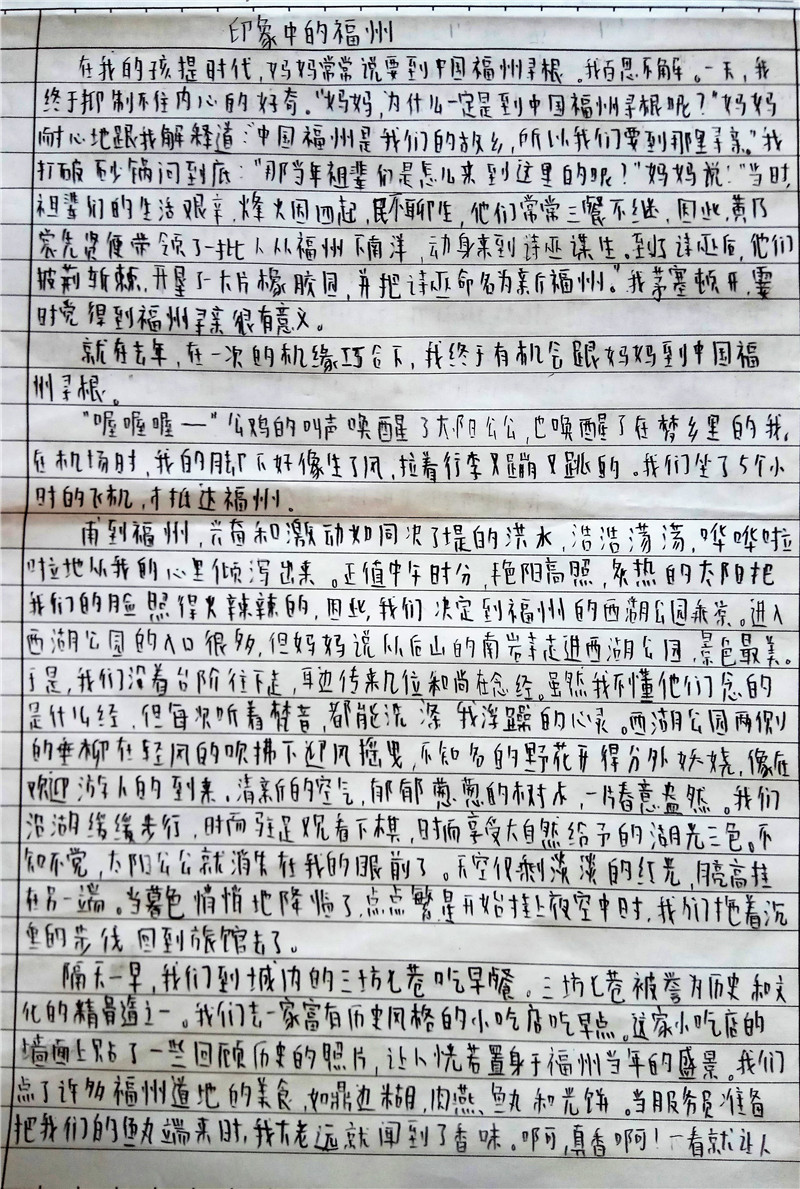 印象中的福州
在我的孩提时代，妈妈常常说要到中国福州寻根。我百思不解。一天，我
终于抑制不住内心的好奇。“妈妈，为什么一定是到中国福州寻根呢？”妈妈
耐心地跟我解释道：“中国福州是我们的故乡，所以我们要到那里寻亲。”我
打破砂锅问到底：“那当年祖辈们是怎么来到这里的呢？”妈妈说：“当时，
祖辈们的生活艰辛，烽火因四起，民不聊生，他们常常三餐不继，因此，黄乃
裳先贤便带领了一批人从福州下南洋，动身来到诗巫谋生。到了诗巫后，他们
披荆斩棘，开垦了一大片橡胶园，并把诗巫命名为新福州。”我茅塞顿开，霎
时觉得到福州寻亲很有意义。
就在去年，在一次的机缘巧合下，我终于有机会跟妈妈到中国福
州寻根。
“喔喔喔——”公鸡的叫声唤醒了太阳公公，也唤醒了在梦乡里的我。
在机场时，我的脚下好像生了风，拉着行李又蹦又跳的。我们坐了5个小
时的飞机，才抵达福州。
甫到福州，兴奋和激动如同决了堤的洪水，浩浩荡荡，哗哗啦
啦地从我的心里倾泻出来。正值中午时分，艳阳高照，炙热的太阳把
我们的脸照得火辣辣的，因此，我们决定到福州的西湖公园乘凉。进入
西湖公园的入口很多，但妈妈说从后山的南岩寺走进西湖公园，景色最美。
于是，我们沿着台阶往下走，耳边传来几位和尚在念经。虽然我不懂他们念的
是什么经，但每次听着梵音，都能洗涤我浮躁的心灵。西湖公园两侧
的垂柳在轻风的吹拂下迎风摇曳，不知名的野花开得分外妖娆，像在
欢迎游人的到来。清新的空气，郁郁葱葱的树木，一片春意盎然。我们
沿湖缓缓步行，时而驻足观看下棋，时而享受大自然给予的湖光三色。不
知不觉，太阳公公就消失在我的眼前了。天空仅剩淡淡的红光，月亮高挂
在另一端。当暮色悄悄地降临了，点点繁星开始挂上夜空中时，我们拖着沉
重的步伐回到旅馆去了。
隔天一早，我们到城内的三坊七巷吃早餐。三坊七巷被誉为历史和文
化的精骨道之一。我们去一家富有历史风格的小吃店吃早点。这家小吃店的
墙面上贴了一些回顾历史的照片，让人恍若置身于福州当年的盛景。我们
点了许多福州道地的美食，如鼎边糊，肉燕，鱼丸和光饼。当服务员准备
把我们的鱼丸端来时，我大老远就闻到了香味。啊，真香啊！一看就让人